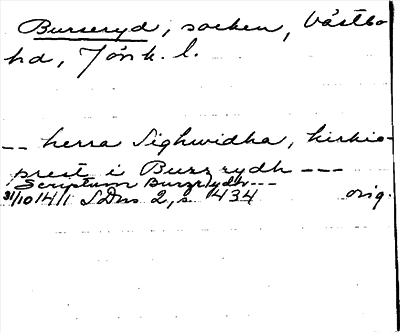 Burseryd, socken, Västbo
hd, Jönk. l.
-- herra Sighwidha, kirkio-
prest i Burzrydh ---
Scriptum Burzrydh ---
31/10 1411 SDns 2, s 434 orig.